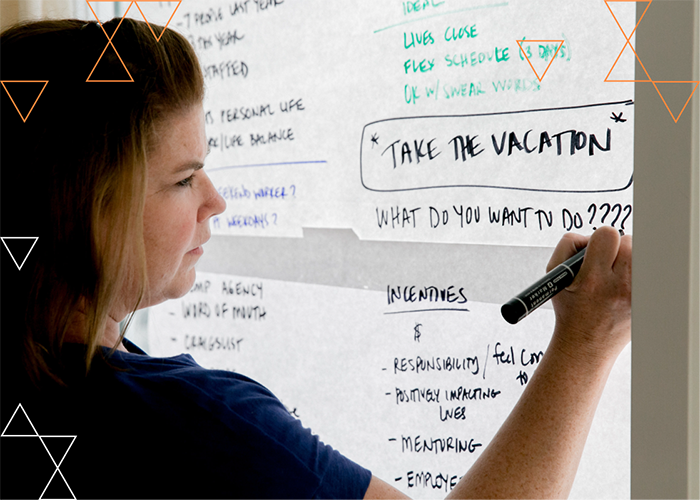 - 7 PEOPLE LAST YEAR
THIS YEAR
STAFFED
PERSONAL LIFE
/LIFE BALANCE
WORKER?
WEEKDAYS?
AGENCY
- WORD OF MOUTH
- CRAIGSLIST
IDEAL
LIVES CLOSE
FLEX SCHEDULE (3 DAYS)
OK W/ SWEAR WORDS
* TAKE THE VACATION *
WHAT DO YOU WANT TO DO????
INCENTIVES
$
- RESPONSIBILITY / feel
to
- POSITIVELY IMPACTING
LIVES
- MENTORING
- EMPLOYE